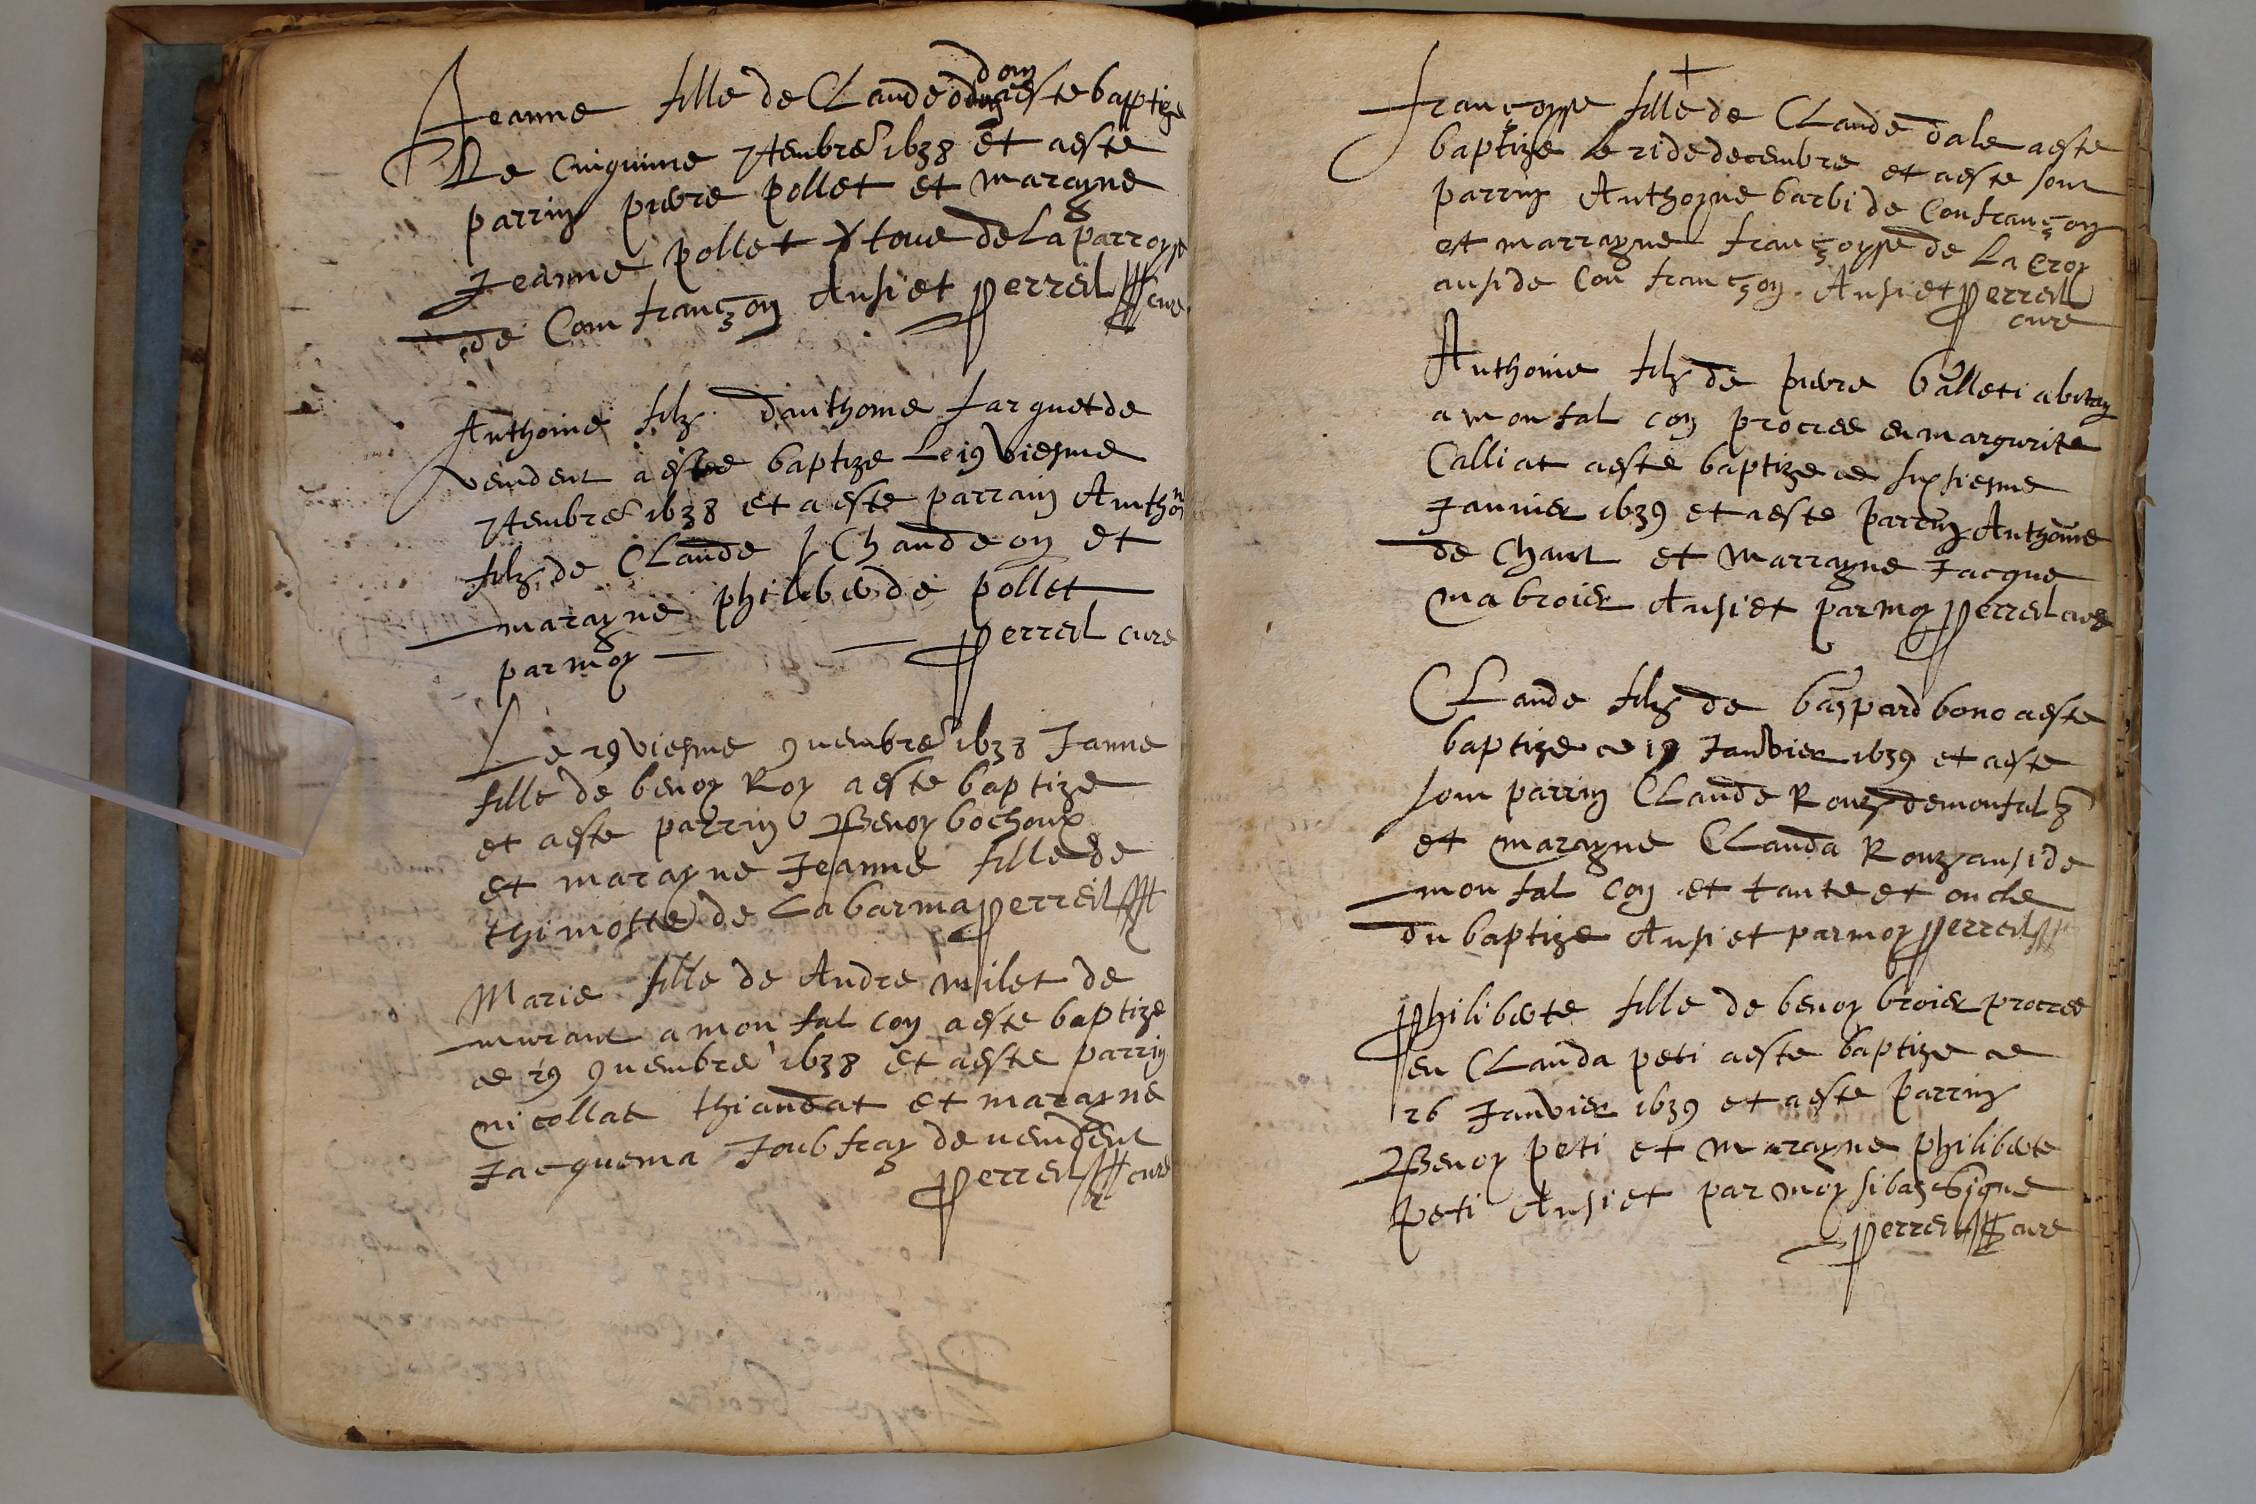 Jeanne fille de Claude odom aeste baptize
Le cinquime 7tembre 1638 et aeste
parrin pierre pollet et marayne
Jeanne pollet toue de La parroysse
de Com françon Ansi et Perreil cure
Anthoine filz danthoine farguet de
veindent a este baptize Le 19 viesme
7tembre 1638 et aeste parrain Anthon
filz de Claude Chaudeon et
marayne philiberde pollet
par moy Perreil cure
Le 29 viesme 9vembre 1638 Janne
fille de benoy Roy aeste baptize
et aeste parrin Benoy bochoux
et marayne Jeanne fille de
thimotte de La barma Perreil
Marie fille de Andre milet de
murant a mon fal con aeste baptize
ce 29 9vembre 1638 et aeste parrin
nicollat thiandat et marayne
Jacquema Joubfray de veindent
Perreil cure
françoyse fille de Claude dale aeste
baptize le 21 de decembre et aeste son
parrin Anthoyne barbi de Confrançon
et marrayne françoysse de La Croy
ansi de Con françon. Ansi et Perreil
cure
Anthoine filz de pierre balleti abitay
a mon fal con procree en margurite
Calliat aeste baptize ce sixsiesme
Janvier 1639 et aeste parrin Anthoine
de Chant et Marrayne Jacque
ma broier Ansi et par moy Perreil cure
Claude filz de gaspard bono aeste
baptize ce 19 Janvier 1639 et aeste
son parrin Claude Rouz de monfal
et marayne Clauda Rouz ansi de
mon fal con et tante et oncle
du baptize Ansi et par moy Perreil
Philiberte fille de benoy broier procree
en Clauda peti aeste baptize ce
26 Janvier 1639 et aeste parrin
Benoy peti et marayne philiberte
peti Ansi et par moy sibaz signe
Perreil cure